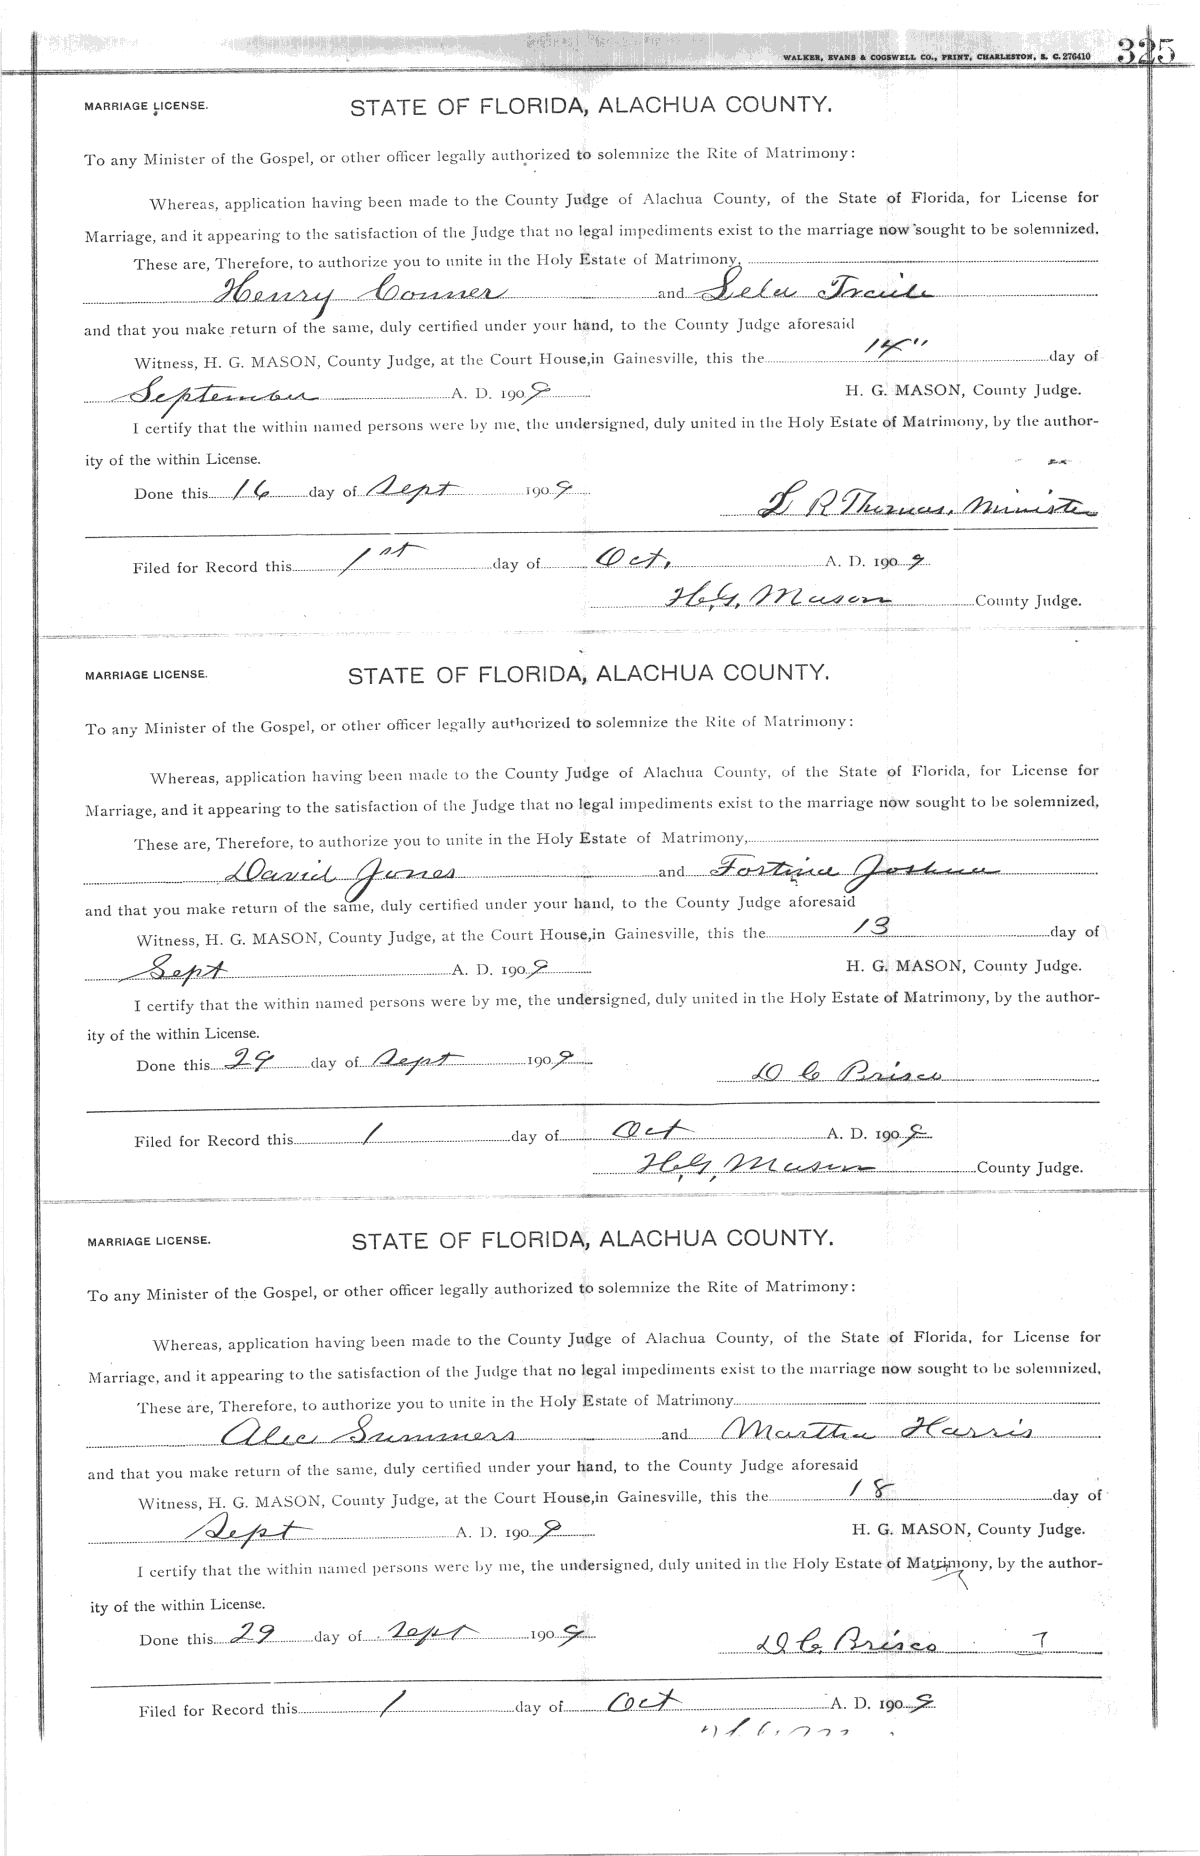 WALKER, EVANS & COGSWELL CO., PRINT, CHARLESTON, S. C. 276410 325
MARRIAGE LICENSE. STATE OF FLORIDA, ALACHUA COUNTY.
To any Minister of the Gospel, or other officer legally authorized to solemnize the Rite of Matrimony:
Whereas, application having been made to the County Judge of Alachua County, of the State of Florida, for License for
Marriage, and it appearing to the satisfaction of the Judge that no legal impediments exist to the marriage now sought to be solemnized.
These are, Therefore, to authorize you to unite in the Holy Estate of Matrimony,
Henry Conner and Lela
and that you make return of the same, duly certified under your hand, to the County Judge aforesaid
Witness, H. G. MASON, County Judge, at the Court House, in Gainesville, this the 14" day of
September A. D. 1909 H. G. MASON, County Judge.
I certify that the within named persons were by me, the undersigned, duly united in the Holy Estate of Matrimony, by the author-
ity of the within License.
Done this 16 day of Sept 1909
L R Thomas, Minister
Filed for Record this 1st day of Oct, A. D. 1909
H, G, Mason County Judge.
MARRIAGE LICENSE. STATE OF FLORIDA, ALACHUA COUNTY.
To any Minister of the Gospel, or other officer legally authorized to solemnize the Rite of Matrimony:
Whereas, application having been made to the County Judge of Alachua County, of the State of Florida, for License for
Marriage, and it appearing to the satisfaction of the Judge that no legal impediments exist to the marriage now sought to be solemnized,
These are, Therefore, to authorize you to unite in the Holy Estate of Matrimony,
David Jones and Fortina Joshua
and that you make return of the same, duly certified under your hand, to the County Judge aforesaid
Witness, H. G. MASON, County Judge, at the Court House, in Gainesville, this the 13 day of
Sept A. D. 1909 H. G. MASON, County Judge.
I certify that the within named persons were by me, the undersigned, duly united in the Holy Estate of Matrimony, by the author-
ity of the within License.
Done this 29 day of Sept 1909
D C Brisco
Filed for Record this 1 day of Oct A. D. 1909
H, G, Mason County Judge.
MARRIAGE LICENSE. STATE OF FLORIDA, ALACHUA COUNTY.
To any Minister of the Gospel, or other officer legally authorized to solemnize the Rite of Matrimony:
Whereas, application having been made to the County Judge of Alachua County, of the State of Florida, for License for
Marriage, and it appearing to the satisfaction of the Judge that no legal impediments exist to the marriage now sought to be solemnized,
These are, Therefore, to authorize you to unite in the Holy Estate of Matrimony
Alec Summers and Martha Harris
and that you make return of the same, duly certified under your hand, to the County Judge aforesaid
Witness, H. G. MASON, County Judge, at the Court House, in Gainesville, this the 18 day of
Sept A. D. 1909 H. G. MASON, County Judge.
I certify that the within named persons were by me, the undersigned, duly united in the Holy Estate of Matrimony, by the author-
ity of the within License.
Done this 29 day of Sept 1909 D C. Brisco
Filed for Record this 1 day of Oct A. D. 1909